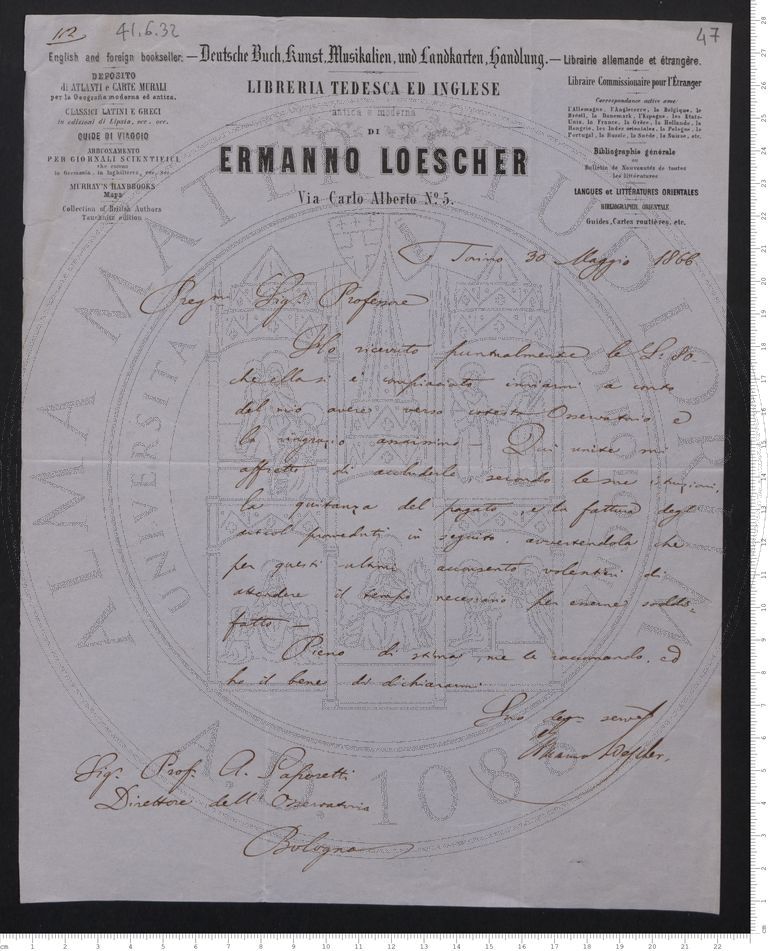 112
41.6.32
47
English and foreign bookseller. — Deutsche Buch, Kunst, Musikalien, und Landkarten, Handlung. — Librairie allemande et étrangère.
DEPOSITO
di ATLANTI e CARTE MURALI
per la Geografia moderna ed antica.
CLASSICI LATINI E GRECI
in edizioni di Lipsia, ecc. ecc.
GUIDE DI VIAGGIO
ABBUONAMENTO
PER GIORNALI SCIENTIFICI
che escono
in Germania, in Inghilterra, ecc. ecc.
MURRAY'S HANDBOOKS
Maps
Collection of British Authors
Tauchnitz edition
LIBRERIA TEDESCA ED INGLESE
antica e moderna
DI
ERMANNO LOESCHER
Via Carlo Alberto N.º 5.
Libraire Commissionaire pour l'Étranger
Correspondance active avec:
l'Allemagne, l'Angleterre, la Belgique, le
Brésil, le Danemark, l'Espagne, les États-
Unis, la France, la Grèce, la Hollande, la
Hongrie, les Indes orientales, la Pologne, le
Portugal, la Russie, la Suède, la Suisse, etc.
Bibliographie générale
ou
Bulletin de Nouveautés de toutes
les littératures
LANGUES et LITTÉRATURES ORIENTALES
BIBLIOGRAPHIE ORIENTALE
Guides, Cartes routières, etc.
Torino 30 Maggio 1866
Pregm Sigr Professore
Ho ricevuto puntualmente le L. 80.—
che ella si è compiaciuto inviarmi a conto
del mio avere verso cotesto Osservatorio e
la ringrazio assaissimo — Qui unite mi
affretto di accluderle, secondo le sue istruzioni,
la quitanza del pagato, e la fattura degli
articoli provveduti in seguito, avvertendola che
per questi ultimi acconsento volentieri di
attendere il tempo necessario per esserne soddis-
fatto —
Pieno di stima, me le raccomando, ed
ho il bene di dichiararmi
Suo devo servo
Ermanno Loescher.
Sigr Prof. A. Saporetti
Direttore dell' Osservatorio
Bologna
ALMA MATER STUDIORUM
UNIVERSITÀ
A.D. 1088